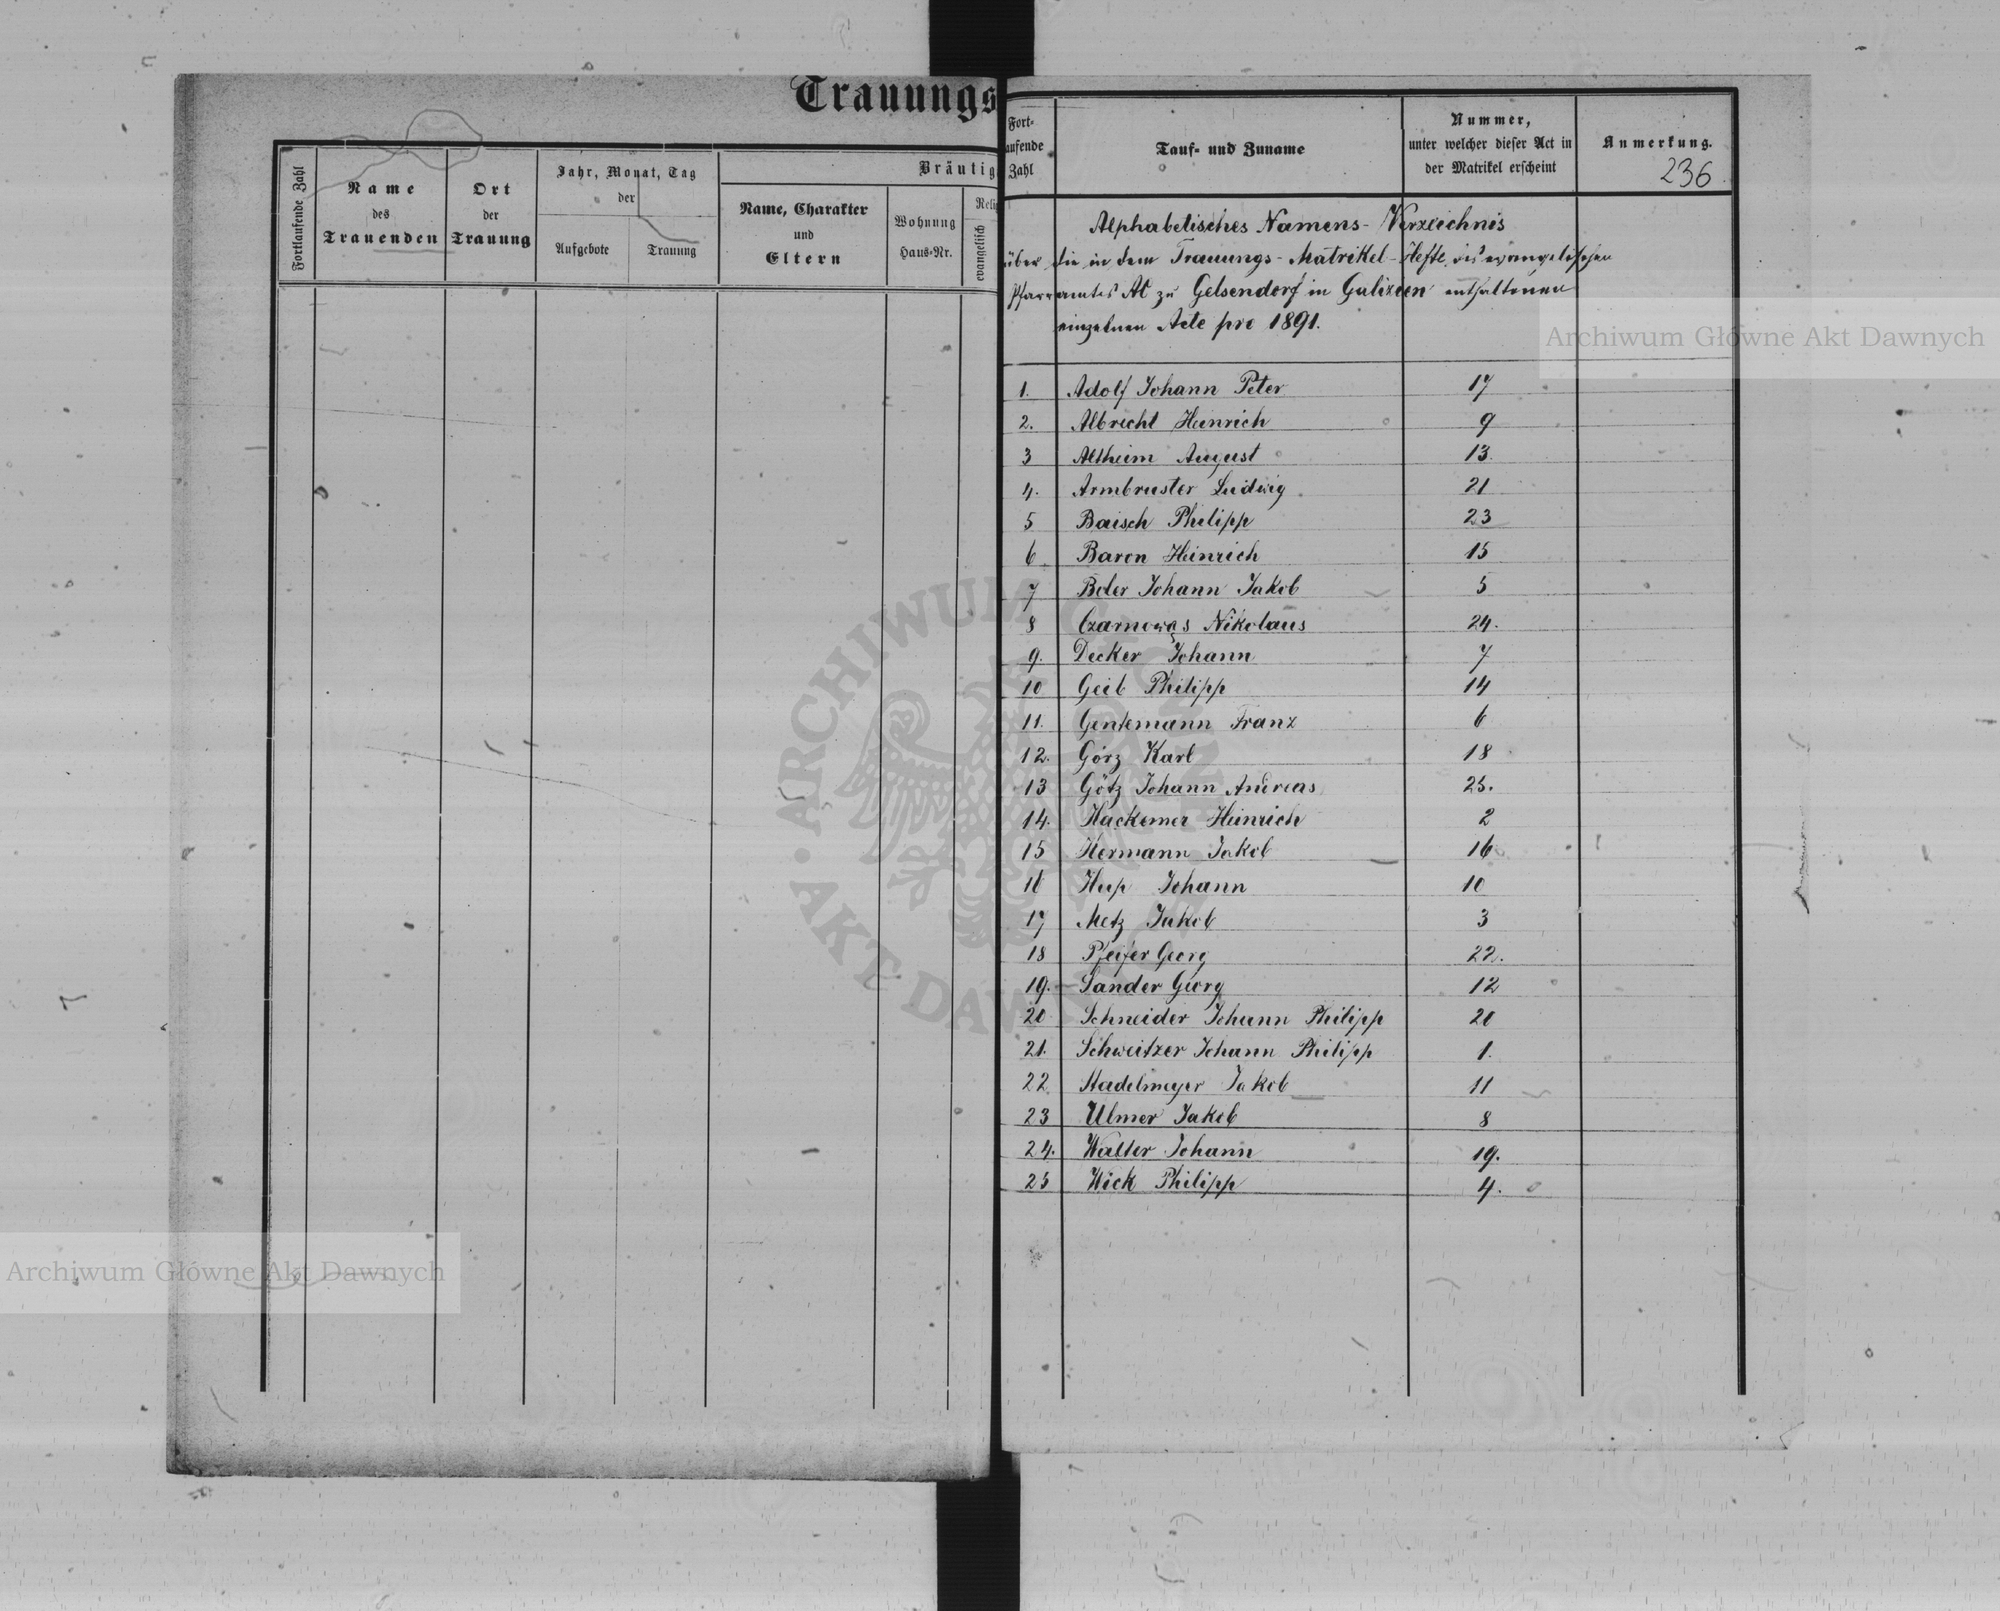 Trauungs
Fortlaufende Zahl
Name
des
Trauenden
Ort
der
Trauung
Jahr, Monat, Tag
der
Aufgebote
Trauung
Bräutig
Name, Charakter
und
Eltern
Wohnung
Haus-Nr.
Relig
evangelisch
Fort-
aufende
Zahl
Tauf- und Zuname
Nummer,
unter welcher dieser Act in
der Matrikel erscheint
Anmerkung.
236
Alphabetisches Namens-Verzeichnis
über die in dem Trauungs-Matrikel-Hefte des evangelischen
Pfarramtes AC zu Gelsendorf in Galizien enthaltenen
einzelnen Acte pro 1891.
1. Adolf Johann Peter 17
2. Albrecht Heinrich 9
3 Altheim August 13.
4. Armbruster Ludwig 21
5 Baisch Philipp 23
6 Baron Heinrich 15
7 Boler Johann Jakob 5
8 Nikolaus 24.
9. Decker Johann 7
10 Geib Philipp 14
11. Gentemann Franz 6
12. Görz Karl 18
13 Götz Johann Andreas 25.
14. Hackemer Heinrich 2
15 Hermann Jakob 16
16 Johann 10
17 Metz Jakob 3
18 Pfeifer Georg 22.
19. Sander Georg 12
20 Schneider Johann Philipp 20
21. Schweitzer Johann Philipp 1.
22 Stadelmeyer Jakob 11
23 Ulmer Jakob 8
24. Walter Johann 19.
25 Wick Philipp 4.
Archiwum Główne Akt Dawnych
Archiwum Główne Akt Dawnych
ARCHIWUM GŁÓWNE AKT DAWNYCH